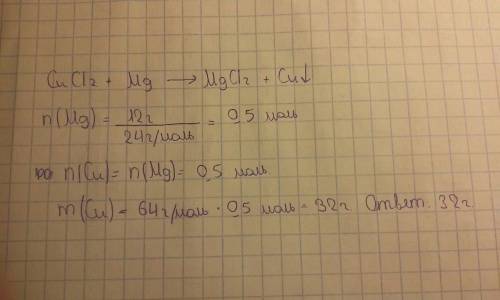 CuCl2 + Mg ⟶ MgCl2 + Cu↓
n(Mg) = 12г / 24г/моль = 0,5 моль
n(Cu) = n(Mg) = 0,5 моль
m(Cu) = 64г/моль · 0,5 моль = 32г Ответ: 32г